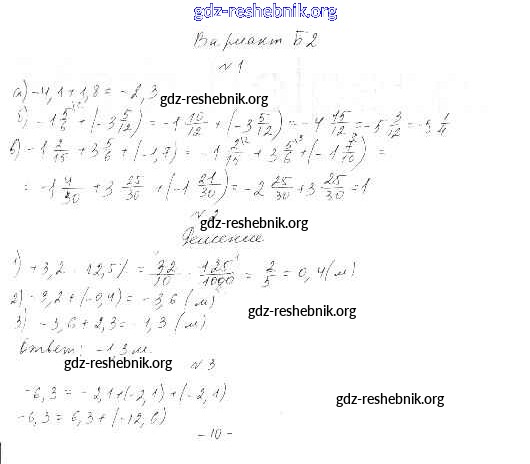 gdz-reshebnik.org
Вариант Б2
№1
а) -4,1+1,8 = -2,3
gdz-reshebnik.org
б) -1 5/6 + (-3 5/12) = -1 10/12 + (-3 5/12) = -4 15/12 = -5 3/12 = -5 1/4
в) -1 2/15 + 3 5/6 + (-1,7) = -1 2/15 + 3 5/6 + (-1 7/10) =
= -1 4/30 + 3 25/30 + (-1 21/30) = -2 25/30 + 3 25/30 = 1
№2
gdz-reshebnik.org
Решение
1) +3,2 · 12,5% = 32/10 · 125/1000 = 2/5 = 0,4 (м)
2) -3,2 + (-0,4) = -3,6 (м)
gdz-reshebnik.org
3) -3,6 + 2,3 = -1,3 (м)
Ответ: -1,3 м.
gdz-reshebnik.org
№3
-6,3 = -2,1+(-2,1)+(-2,1)
gdz-reshebnik.org
-6,3 = 6,3 + (-12,6)
-10-